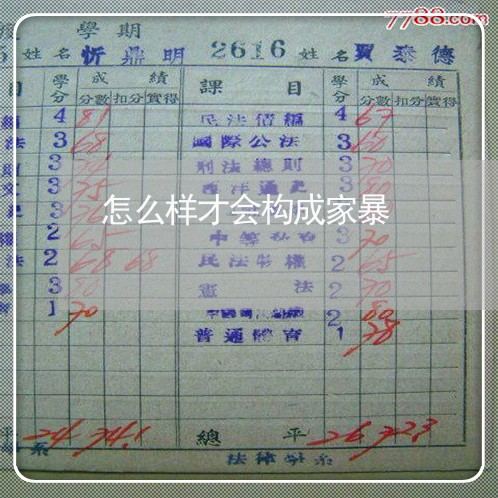 7788.com
學期
姓名忻鼎明 2616 姓名賈泰德
目 學分 成績 課目 學分 成績
分數 扣分 實得 分數 扣分 實得
4 81 民法債編 4 67
法 3 68 國際公法 3 60
3 刑法總則 3 70
文 3 75 西洋通史 3 80
怎么样才会构成家暴
2 65 3 70
法 2 68 68 民法物權 2 65
3 80 憲法 2 70
育 1 70 2 80
普通體育 1 78
平 24 74.1 總平 26 72.3
系 法律學系